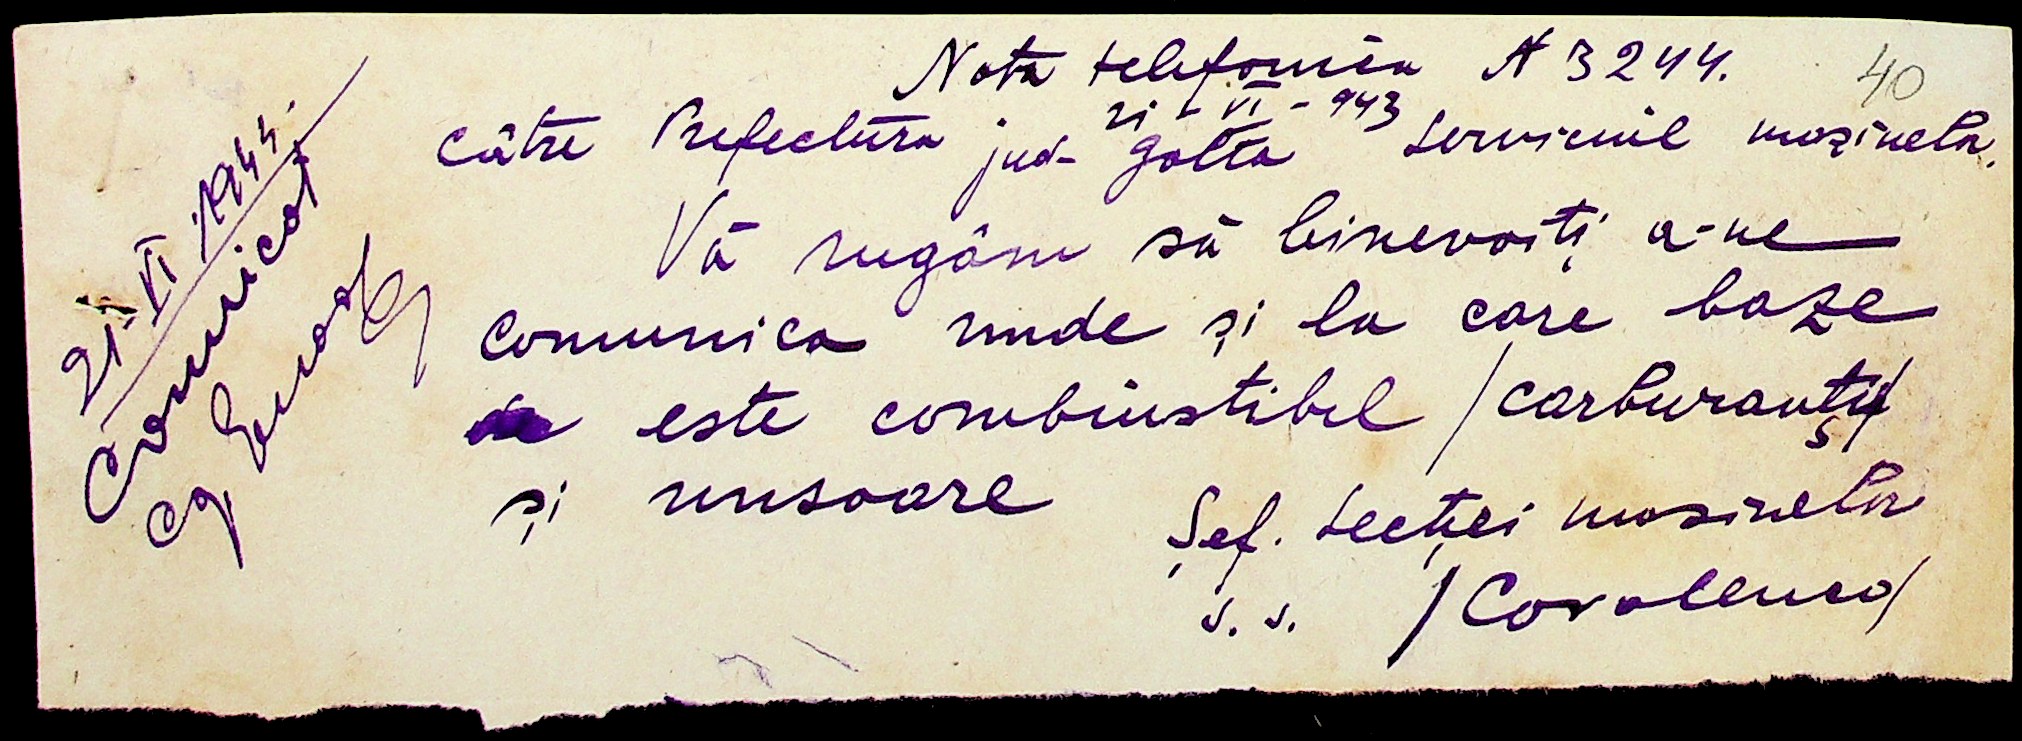 Nota telefonica N 3244.
40
21-VI-943
către Prefectura jud- Golta serviciul mașinelor.
Vă rugăm să binevoiți a-ne
comunica unde și la care baze
este combiustibil /carburanți/
și unsoare
Șef. Secției mașinelor
s. s. /Covalenco/
21-VI 1944.
Comunicat